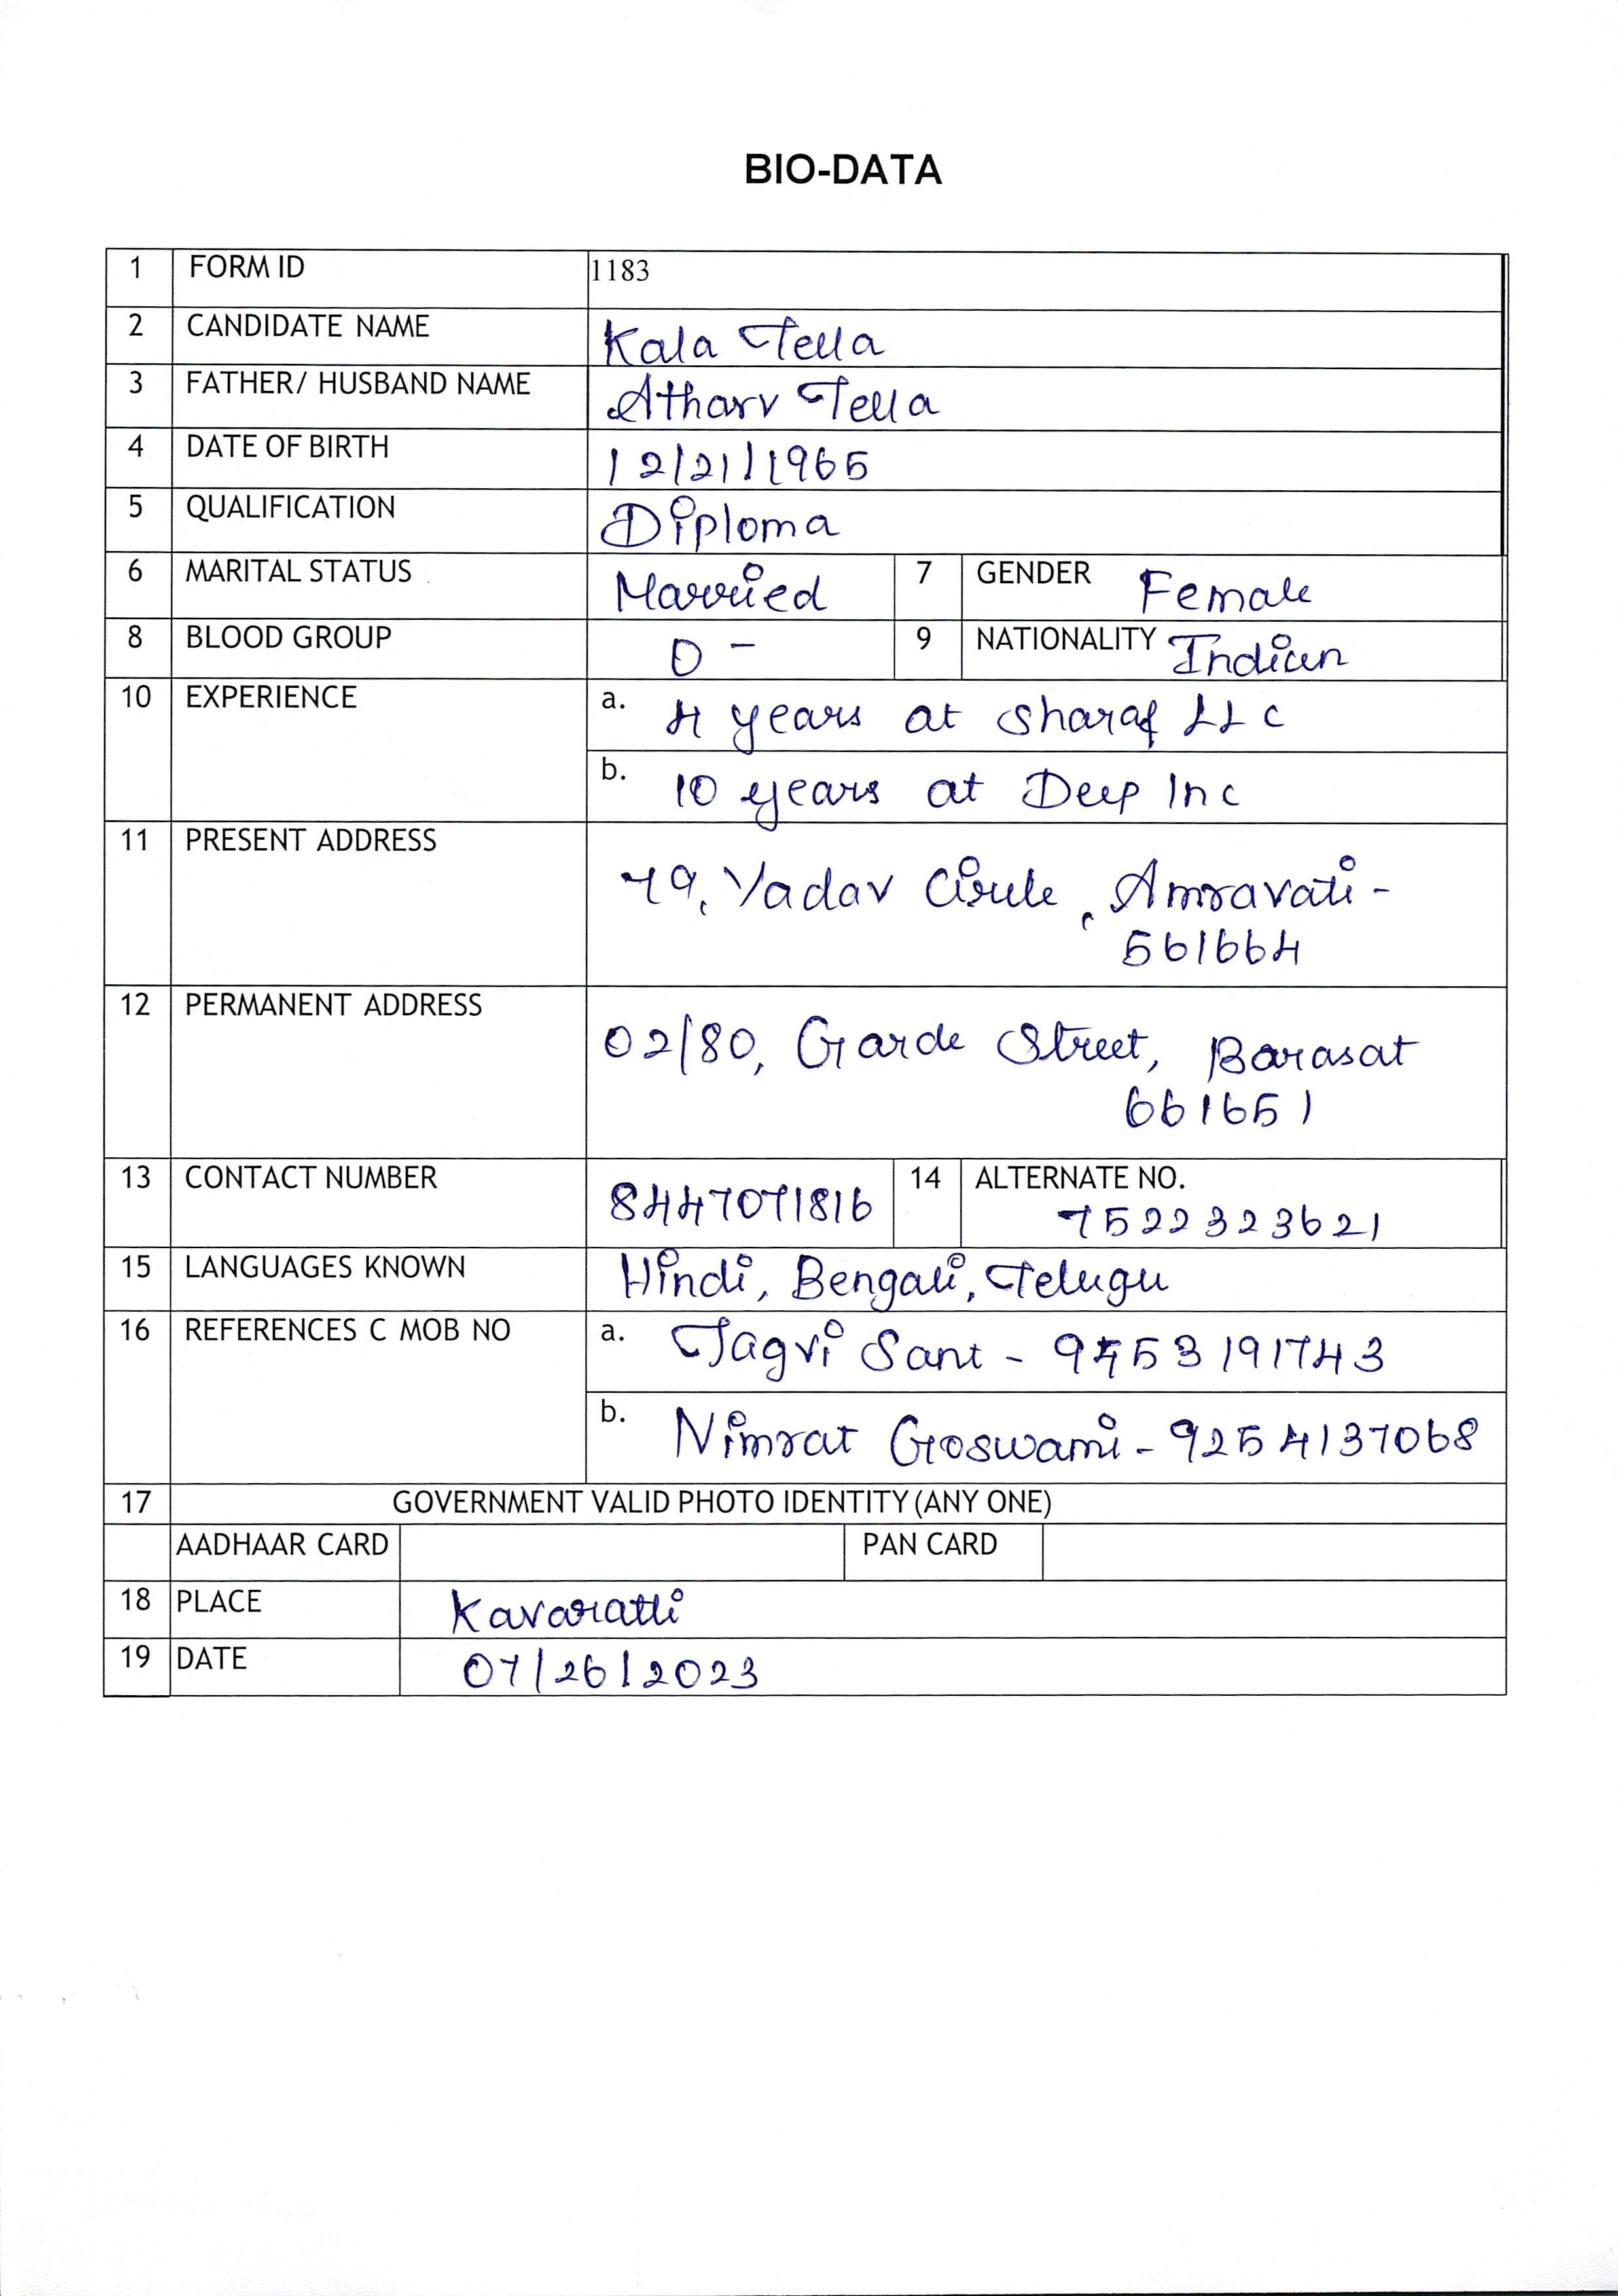 BIO-DATA
1 FORM ID 1183
2 CANDIDATE NAME Kala Tella
3 FATHER/ HUSBAND NAME Atharv Tella
4 DATE OF BIRTH 12/21/1965
5 QUALIFICATION Diploma
6 MARITAL STATUS Married 7 GENDER Female
8 BLOOD GROUP O - 9 NATIONALITY Indian
10 EXPERIENCE a. 4 years at Sharaf LLC
b. 10 years at Deep Inc
11 PRESENT ADDRESS
79, Yadav Circle, Amravati -
561664
12 PERMANENT ADDRESS
02/80, Garde Street, Barasat
661651
13 CONTACT NUMBER 8447071816 14 ALTERNATE NO.
7522323621
15 LANGUAGES KNOWN Hindi, Bengali, Telugu
16 REFERENCES C MOB NO a. Jagvi Sant - 9753191743
b. Nimrat Goswami - 9254137068
17 GOVERNMENT VALID PHOTO IDENTITY (ANY ONE)
AADHAAR CARD PAN CARD
18 PLACE Kavaratti
19 DATE 07/26/2023